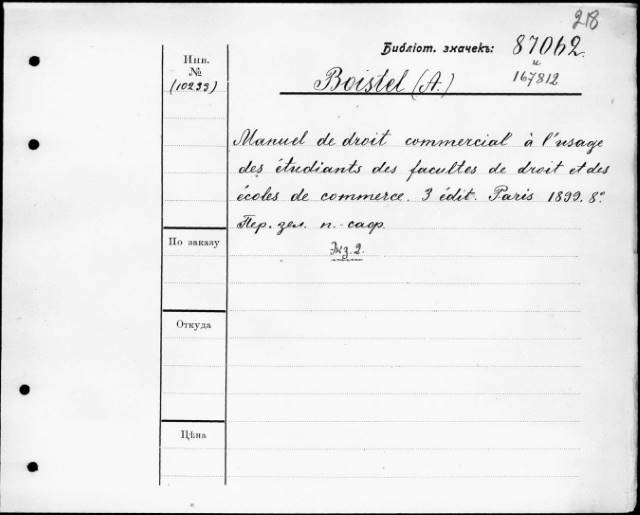 218
Библiот. значекъ: 87062
и
167812
Инв.
№
(10299)
Boistel (A.)
Manuel de droit commercial à l'usage
des étudiants des facultes de droit et des
écoles de commerce. 3 édit. Paris 1899. 8º
Пер. зел. п.-саф.
Экз. 2.
По заказу
Откуда
Цѣна